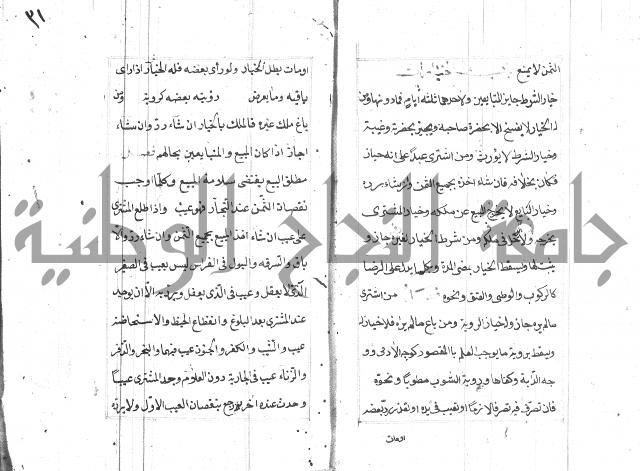 الثمن لا يمنع
خيار الشرط جايز للمتبايعين ولاحدهما ثلثة أيام فما دونها ومن
له الخيار لا يفسخ الا بحضرة صاحبه ويجيز بحضرته وغيبته
وخيار الشرط لا يورث ومن اشترى عبدا على انه خباز
فكان بخلافه فان شاء اخذه بجميع الثمن وان شاء رده
وخيار البايع لا يخرج المبيع عن ملكه وخيار المشترى
يخرجه ولا يدخل في ملكه ومن شرط الخيار لغيره جاز و
يثبت لهما ويسقط الخيار بمضي المدة وبكل ما يدل على الرضا
كالركوب والوطئ والعتق ونحوه من اشترى
مالم يره جاز وله خيار الروية ومن باع مالم يره فلا خيار له
ويسقط بروية ما يوجب العلم بالمقصود كوجه الادمى وو
جه الدابة وكفلها وروية الثوب مطويا ونحوه
فان تصرف فيه تصرفا لازما او تعيب في يده او تعذر رد بعضه
اومات
٣١
اومات بطل الخيار ولو رأى بعضه فله الخيار اذا راى
باقيه وما يعرض رؤيته بعضه كروية ومن
باع ملك غيره فالملك بالخيار ان شاء رد وان شاء
اجاز اذا كان المبيع والمتبايعين بحالهم
مطلق البيع يقتضى سلامة المبيع وكلما اوجب
نقصان الثمن عند التجار فهو عيب واذا اطلع المشترى
على عيب ان شاء اخذ المبيع بجميع الثمن وان شاء رده والا
باق والسرقه والبول في الفراش ليس بعيب في الصغير
الذى لا يعقل وعيب في الذى يعقل ويرد به الا ان يوجد
عند المشترى بعد البلوغ وانقطاع الحيض والاستحاضة
عيب والشيب والكفر والجنون عيب فيهما والبخر والدفر
والزناء عيب في الجارية دون الغلام وجد المشترى عيبا
وحدث عنده اخر يرجع بنقصان العيب الاول ولا يرده
جامعة النجاح الوطنية